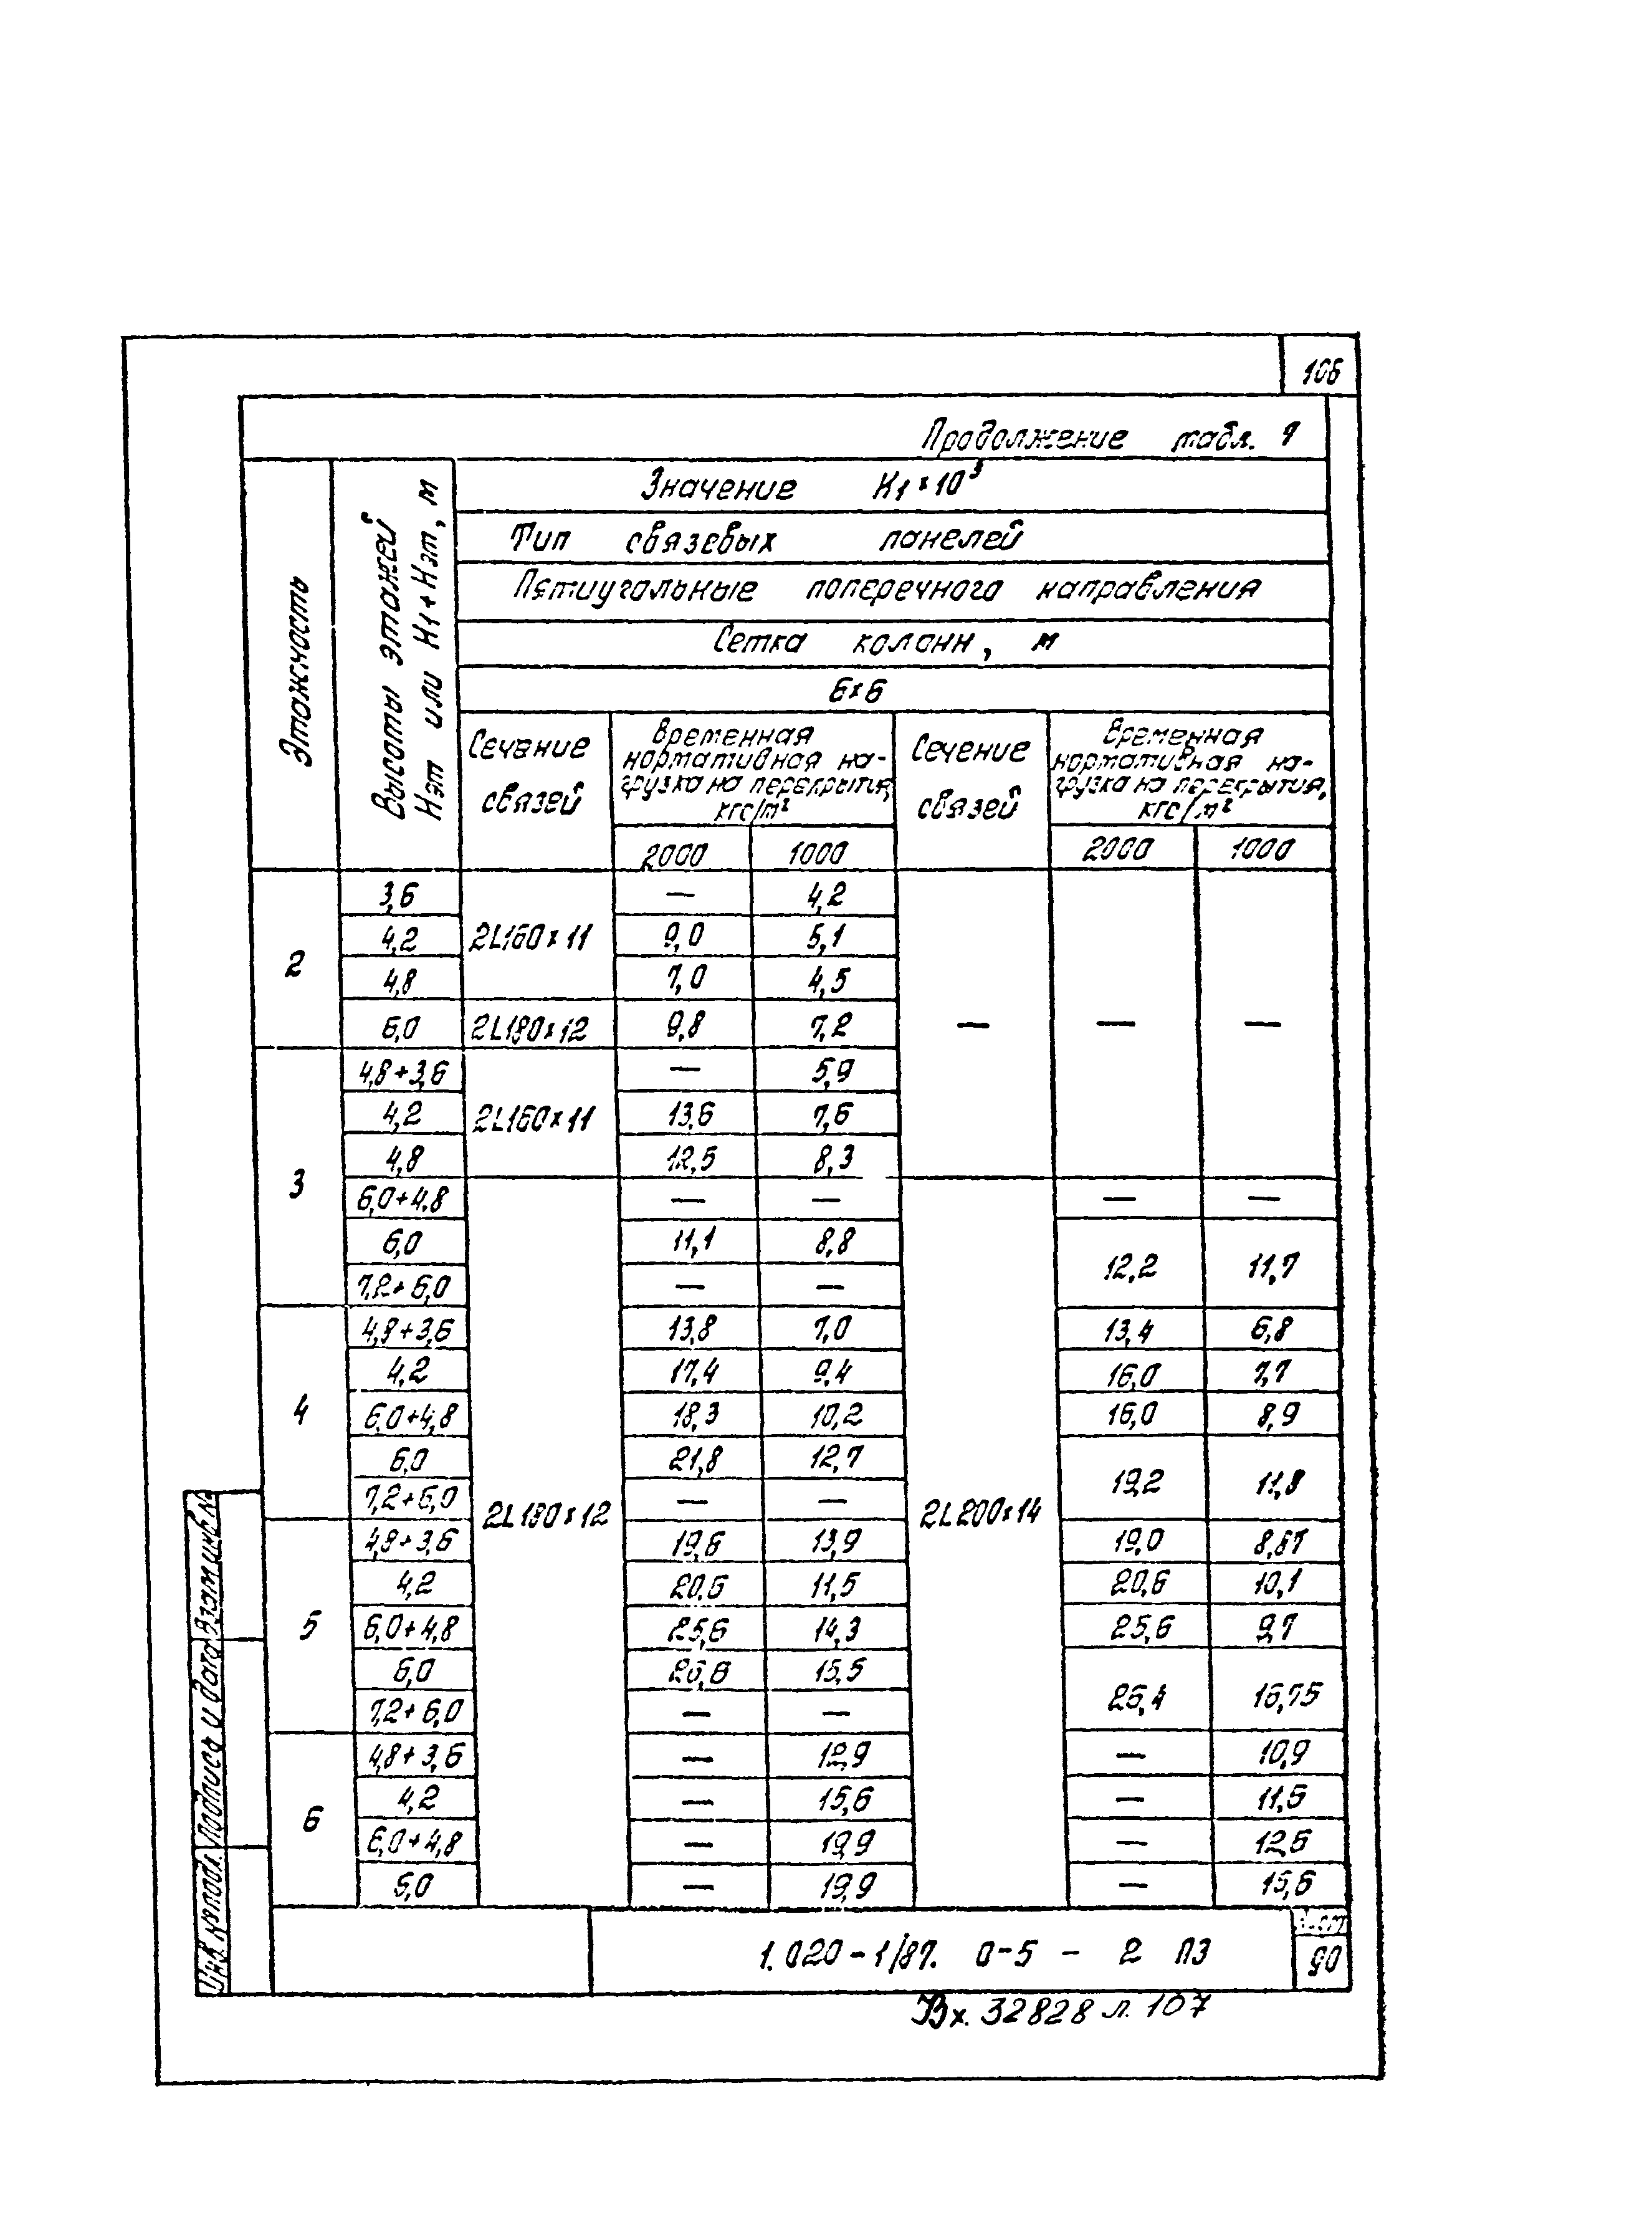 106
Продолжение табл. 9
Этажность
Высоты этажей
Нэт или Н1+Нэт, м
Значение К1×10³
Тип связевых панелей
Пятиугольные поперечного направления
Сетка колонн, м
6×6
Сечение
связей
Временная
нормативная на-
грузка на перекрытия,
кгс/м²
Сечение
связей
Временная
нормативная на-
грузка на перекрытия,
кгс/м²
2000 1000 2000 1000
2
3,6 2L160×11 — 4,2 — — —
4,2 9,0 5,1
4,8 7,0 4,5
6,0 2L180×12 9,8 7,2
3
4,8+3,6 2L160×11 — 5,9
4,2 13,6 7,6
4,8 12,5 8,3
6,0+4,8 2L180×12 — — 2L200×14 — —
6,0 11,1 8,8 12,2 11,7
7,2+6,0 — —
4
4,8+3,6 13,8 7,0 13,4 6,8
4,2 17,4 9,4 16,0 7,7
6,0+4,8 18,3 10,2 16,0 8,9
6,0 21,8 12,7 19,2 11,8
7,2+6,0 — —
5
4,8+3,6 19,6 13,9 19,0 8,87
4,2 20,6 11,5 20,6 10,1
6,0+4,8 25,6 14,3 25,6 9,7
6,0 26,8 15,5 26,4 16,75
7,2+6,0 — —
6
4,8+3,6 — 12,9 — 10,9
4,2 — 15,6 — 11,5
6,0+4,8 — 19,9 — 12,6
6,0 — 19,9 — 15,6
Инв. № подл. Подпись и дата Взам. инв. №
1.020-1/87. 0-5 - 2 ПЗ
Лист
90
Вх. 32828 л. 107